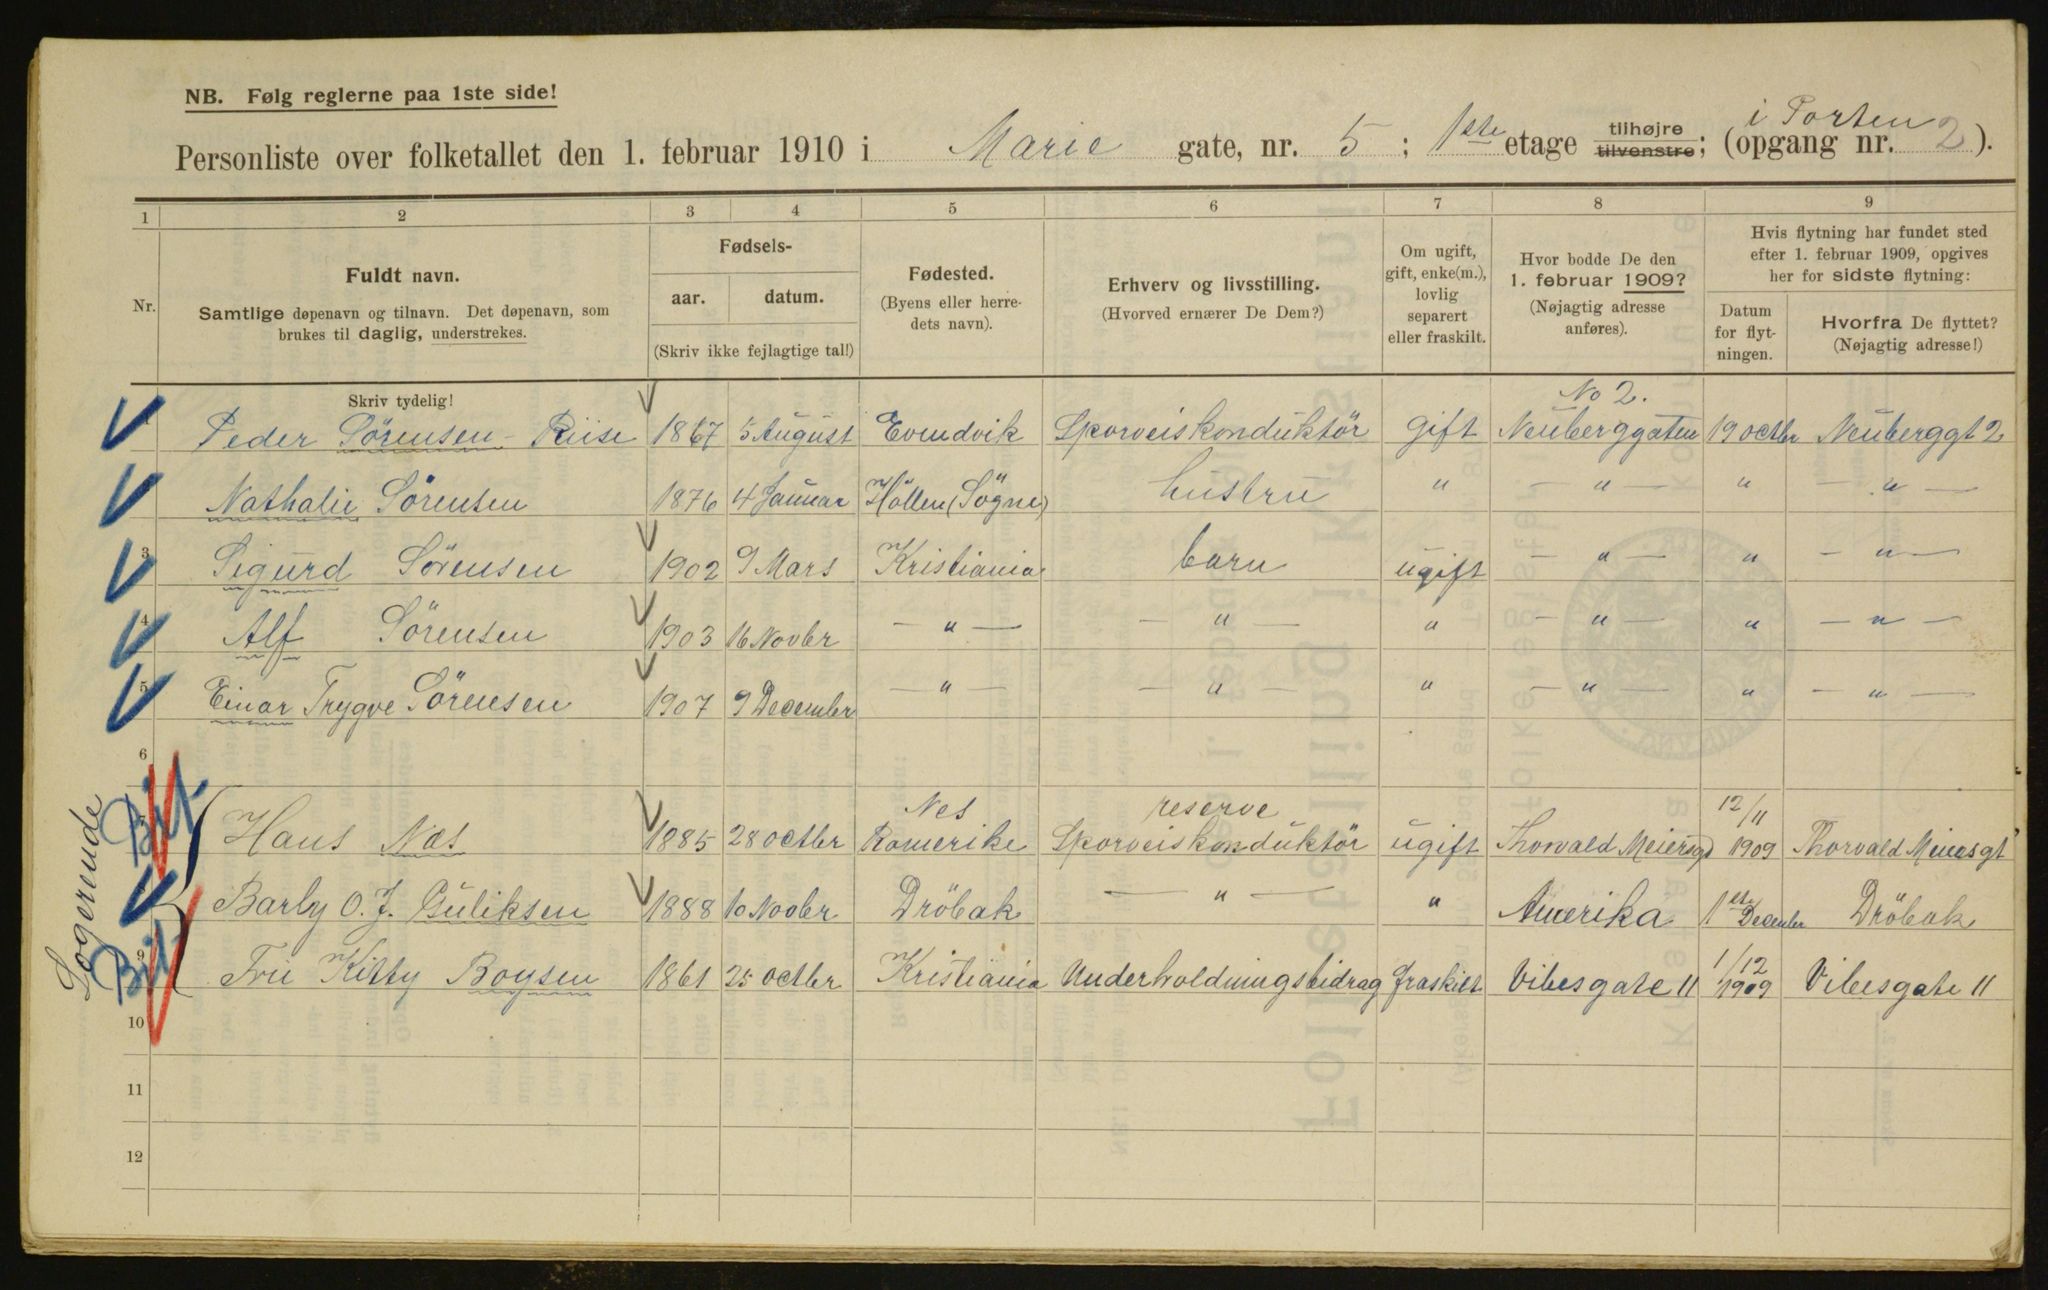 NB. Følg reglerne paa 1ste side!
Personliste over folketallet den 1. februar 1910 i Marie gate, nr. 5 ; 1ste etage tilhøjre tilvenstre; (opgang nr. 2 ).
i Porten
1 2 3 4 5 6 7 8 9
Nr.
Fuldt navn.
Samtlige døpenavn og tilnavn. Det døpenavn, som
brukes til daglig, understrekes.
Fødsels-
aar. datum.
(Skriv ikke fejlagtige tal!)
Fødested.
(Byens eller herre-
dets navn).
Erhverv og livsstilling.
(Hvorved ernærer De Dem?)
Om ugift,
gift, enke(m.),
lovlig
separert
eller fraskilt.
Hvor bodde De den
1. februar 1909?
(Nøjagtig adresse
anføres).
Hvis flytning har fundet sted
efter 1. februar 1909, opgives
her for sidste flytning:
Datum
for flyt-
ningen.
Hvorfra De flyttet?
(Nøjagtig adresse!)
Skriv tydelig!
No 2.
Peder Sörensen - Riise 1867 5 August Evindvik Sporveiskonduktör gift Neuberggaten 19 octbr Neuberggt 2
Nathalie Sörensen 1876 4 Januar Höllen (Sögne) hustru " — " — " — " —
3 Sigurd Sörensen 1902 9 Mars Kristiania barn ugift — " — " — " —
4 Alf Sörensen 1903 16 Novbr — " — — " — " — " — " — " —
5 Einar Trygve Sörensen 1907 9 December — " — — " — " — " — " — " —
6
Logerende
Nes reserve 12/11
Bit Hans Næs 1885 28 octbr Romerike Sporveiskonduktör ugift Thorvald Meiersgt 1909 Thorvald Meiersgt
Barly O. J. Guliksen 1888 10 Novbr Dröbak — " — " Amerika 1ste December Dröbak
9 Bit Fru Kitty Boysen 1861 25 octbr Kristiania Underholdningsbidrag fraskilt Vibesgate 11 1/12 1909 Vibesgate 11
10
11
12